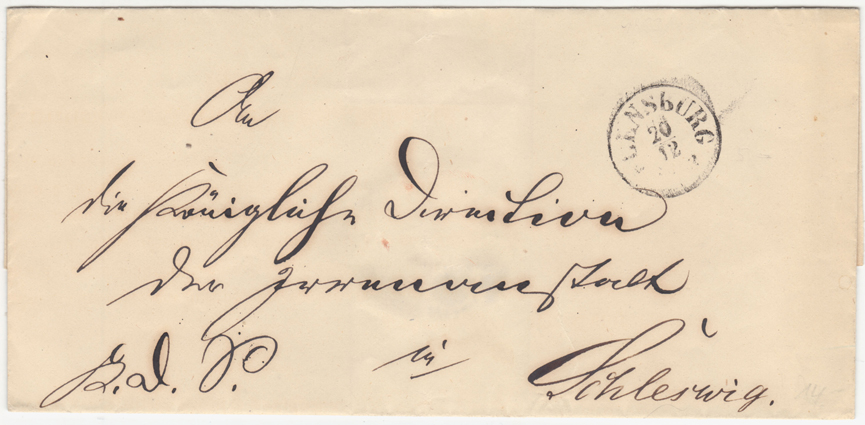 An
FLENSBURG
20
12
die Königliche Direction
der Irrenanstalt
K. D. S. in Schleswig.
14